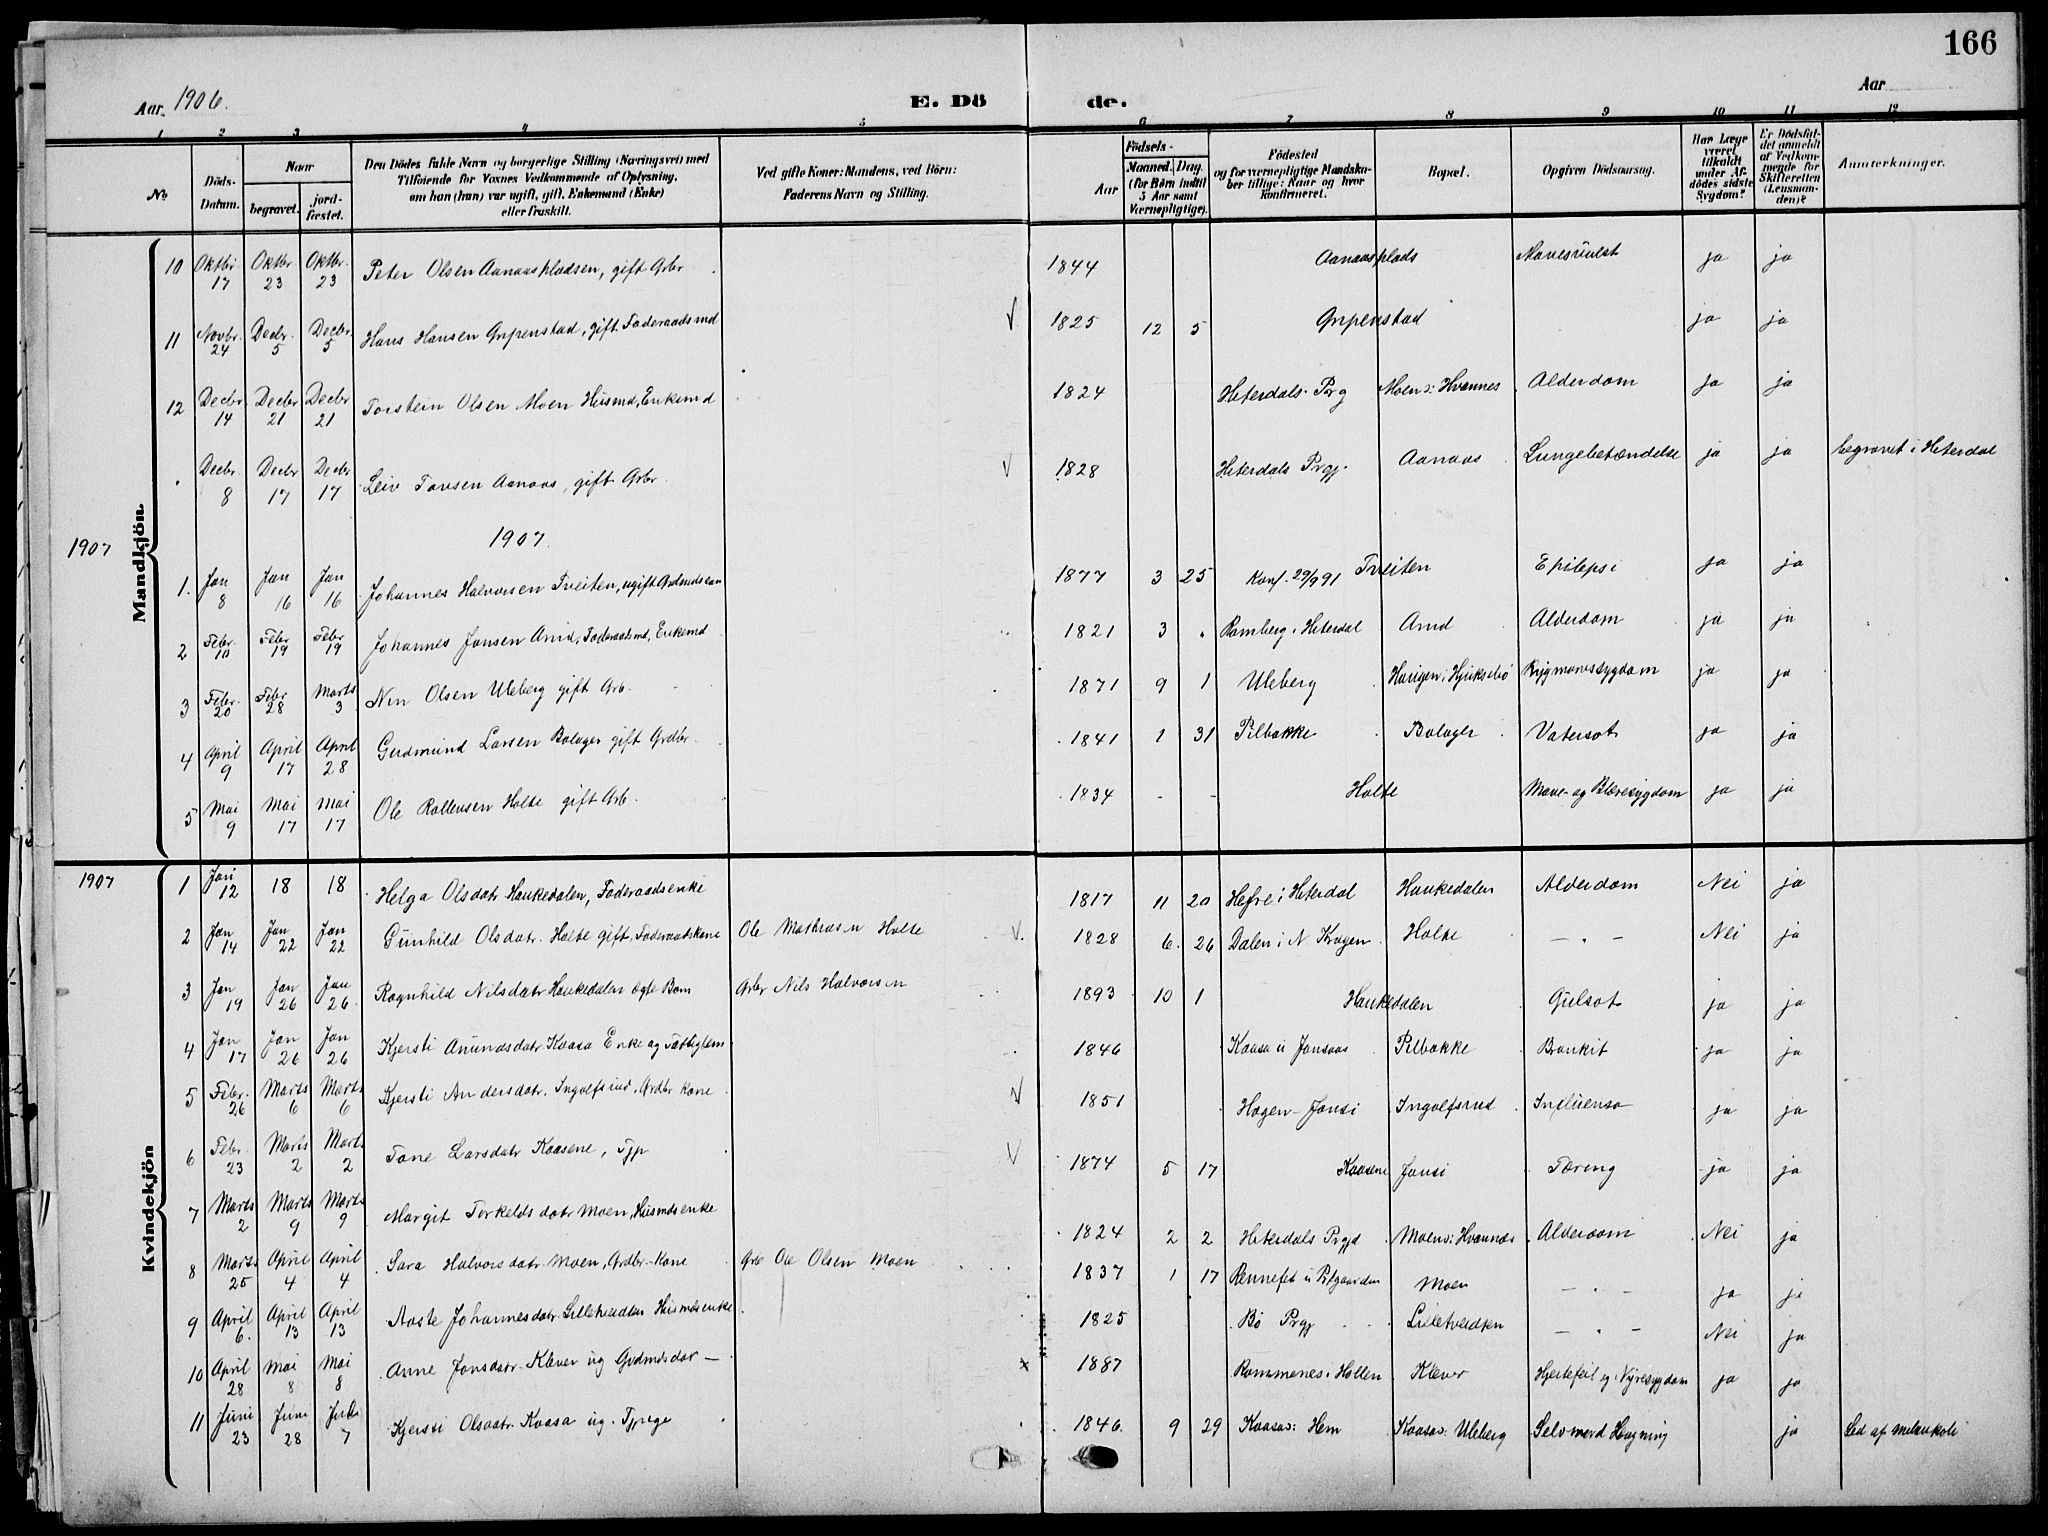 166
Aar 1906. E. Dö de. Aar
1 2 3 4 5 6 7 8 9 10 11 12
No Döds-Datum. Naar begravet. jord-fæstet. Den Dödes fulde Navn og borgerlige Stilling (Næringsvei) med Tilföiende for Voxnes Vedkommende af Oplysning, om han (hun) var ugift, gift, Enkemand (Enke) eller fraskilt. Ved gifte Koner: Mandens, ved Börn: Faderens Navn og Stilling. Aar Födsels- Maaned. Dag. (for Börn indtil 5 Aar samt Værnepligtige). Födested og for værnepligtige Mandskaber tillige: Naar og hvor konfirmeret. Bopæl. Opgiven Dödsaarsag. Har Læge været tilkaldt under Afdödes sidste Sygdom? Er Dödsfaldet anmeldt af Vedkommende for Skifteretten (Lensmanden)? Anmerkninger.
Mandkjön.
10 Oktbr 17 Oktbr 23 Oktbr. 23 Peter Olsen Aanaaspladsen, gift Grbr 1844 Aanaasplads Mavesvulst ja ja
11 Novbr. 24 Decbr. 5 Decbr. 5 Hans Hansen Gripenstad, gift Föderaadsmd 1825 12 5 Gripenstad ja ja
12 Decbr. 14 Decbr 21 Decbr 21 Torstein Olsen Moen Husmd, Enkemd 1824 Hiterdals Prg Moen u: Hvannes Alderdom ja ja
Decbr. 8 Decbr 17 Decbr 17 Leiv Tovsen Aanaas, gift Grbr. 1828 Hiterdals Prgj. Aanaas Lungebetændelse ja ja begravet i Hiterdal
1907 1907.
1. Jan 8 Jan 16 Jan 16 Johannes Halvorsen Tveiten, ugift Grdmdssøn 1877 3 25 Konf. 29/9 91 Tveiten Epilepsi ja ja
2 Febr. 10 Febr 19 Febr 19 Johannes Jonsen Arnd, Föderaadsmd, Enkemd 1821 3 Romberg i Hiterdal Arnd Alderdom ja ja
3 Febr. 20 Febr 28 Marts 3 Olsen Uleberg gift Arb. 1871 9 1 Uleberg Haugen i Hjuksebö Rygmarvssygdom ja ja
4 April 9 April 17 April 28 Gudmund Larsen Bolager gift Grdbr. 1841 1 31 Pilbakke Bolager Vatersot ja ja
5 Mai 9 Mai 17 Mai 17 Ole Rollevsen Holte gift Arb. 1834 - - Holte Mave- og Blæresygdom ja ja
1907
Kvindekjön
1 Jan 12 18 18 Helga Olsdatr Haukedalen, Föderaadsenke 1817 11 20 Hefre i Hiterdal Haukedalen Alderdom Nei ja
2 Jan 14 Jan 22 Jan 22 Gunhild Olsdatr. Holte gift, Föderaadskone Ole Mathisen Holte 1828 6. 26 Dalen i N. Kragen Holte — " — Nei ja
3 Jan 19 Jan 26 Jan 26. Ragnhild Nilsdatr Haukedalen ægte Barn Grbr Nils Halvorsen 1893 10 1 Haukedalen Gulsot ja ja
4 Jan 17 Jan 26 Jan 26 Kjersti Anundsdatr Kaasa Enke og Fattiglem 1846 Kaasa u Jonsaas Pilbakke Bronkit ja ja
5 Febr. 26 Marts 6 Marts 6 Kjersti Andersdatr. Ingolfsrud, Grdbr kone 1851 Hagen - Jonsi Ingolfsrud Influensa ja ja
6 Febr. 23 Marts 2 Marts 2 Tone Larsdatr Kaasene, Tjp 1874 5 17 Kaasene Jonsi Tæring ja ja
7 Marts 2 Marts 9 Marts 9 Margit Torkeldsdatr Moen, Husmdsenke 1824 2 2 Hiterdals Prgjd Moen u: Hvannes Alderdom Nei ja
8 Marts 25 April 4 April 4 Sara Halvorsdatr. Moen, Grdbr-Kone Grb Ole Olsen Moen 1837 1 17 Rennefet u Prstgaarden Moen — " — ja ja
9 April 6. April 13 April 13 Aaste Johannesdatr. Lilletveidten Husmdsenke 1825 Bö Prgj Lilletveidten — " — Nei ja
10 April 28 Mai 8 Mai 8 Anne Jonsdatr. Klever ug Grdmdsdatr — 1887 Rommenes i Hollen Klever Hjertefeil og Nyresygdom ja ja
11 Juni 23 Juni 28 Juli 7 Kjersti Olsdatr. Kaasa ug. Tjpige 1846. 9 29 Kaasa u: Hem Kaasa u: Uleberg Selvmord Hængning ja Led af melankoli